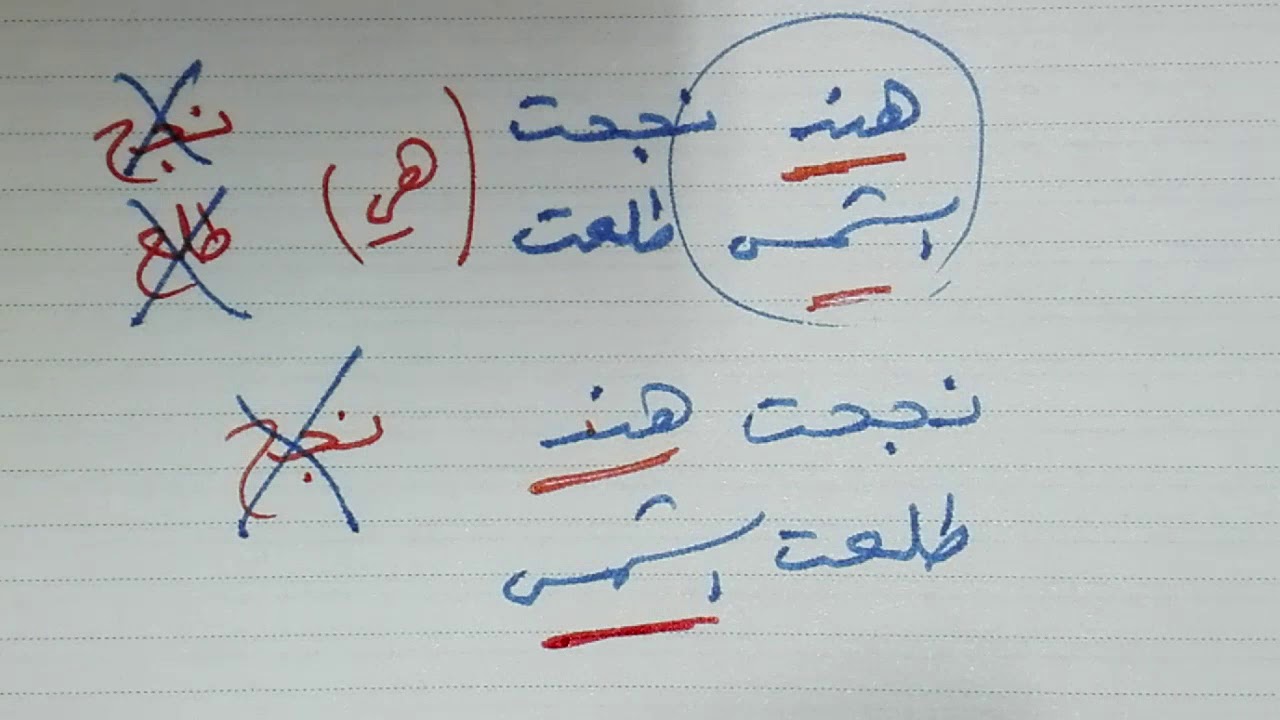 هند نجحت (هي) نجح
الشمس طلعت طلع
نجحت هند نجح
طلعت الشمس